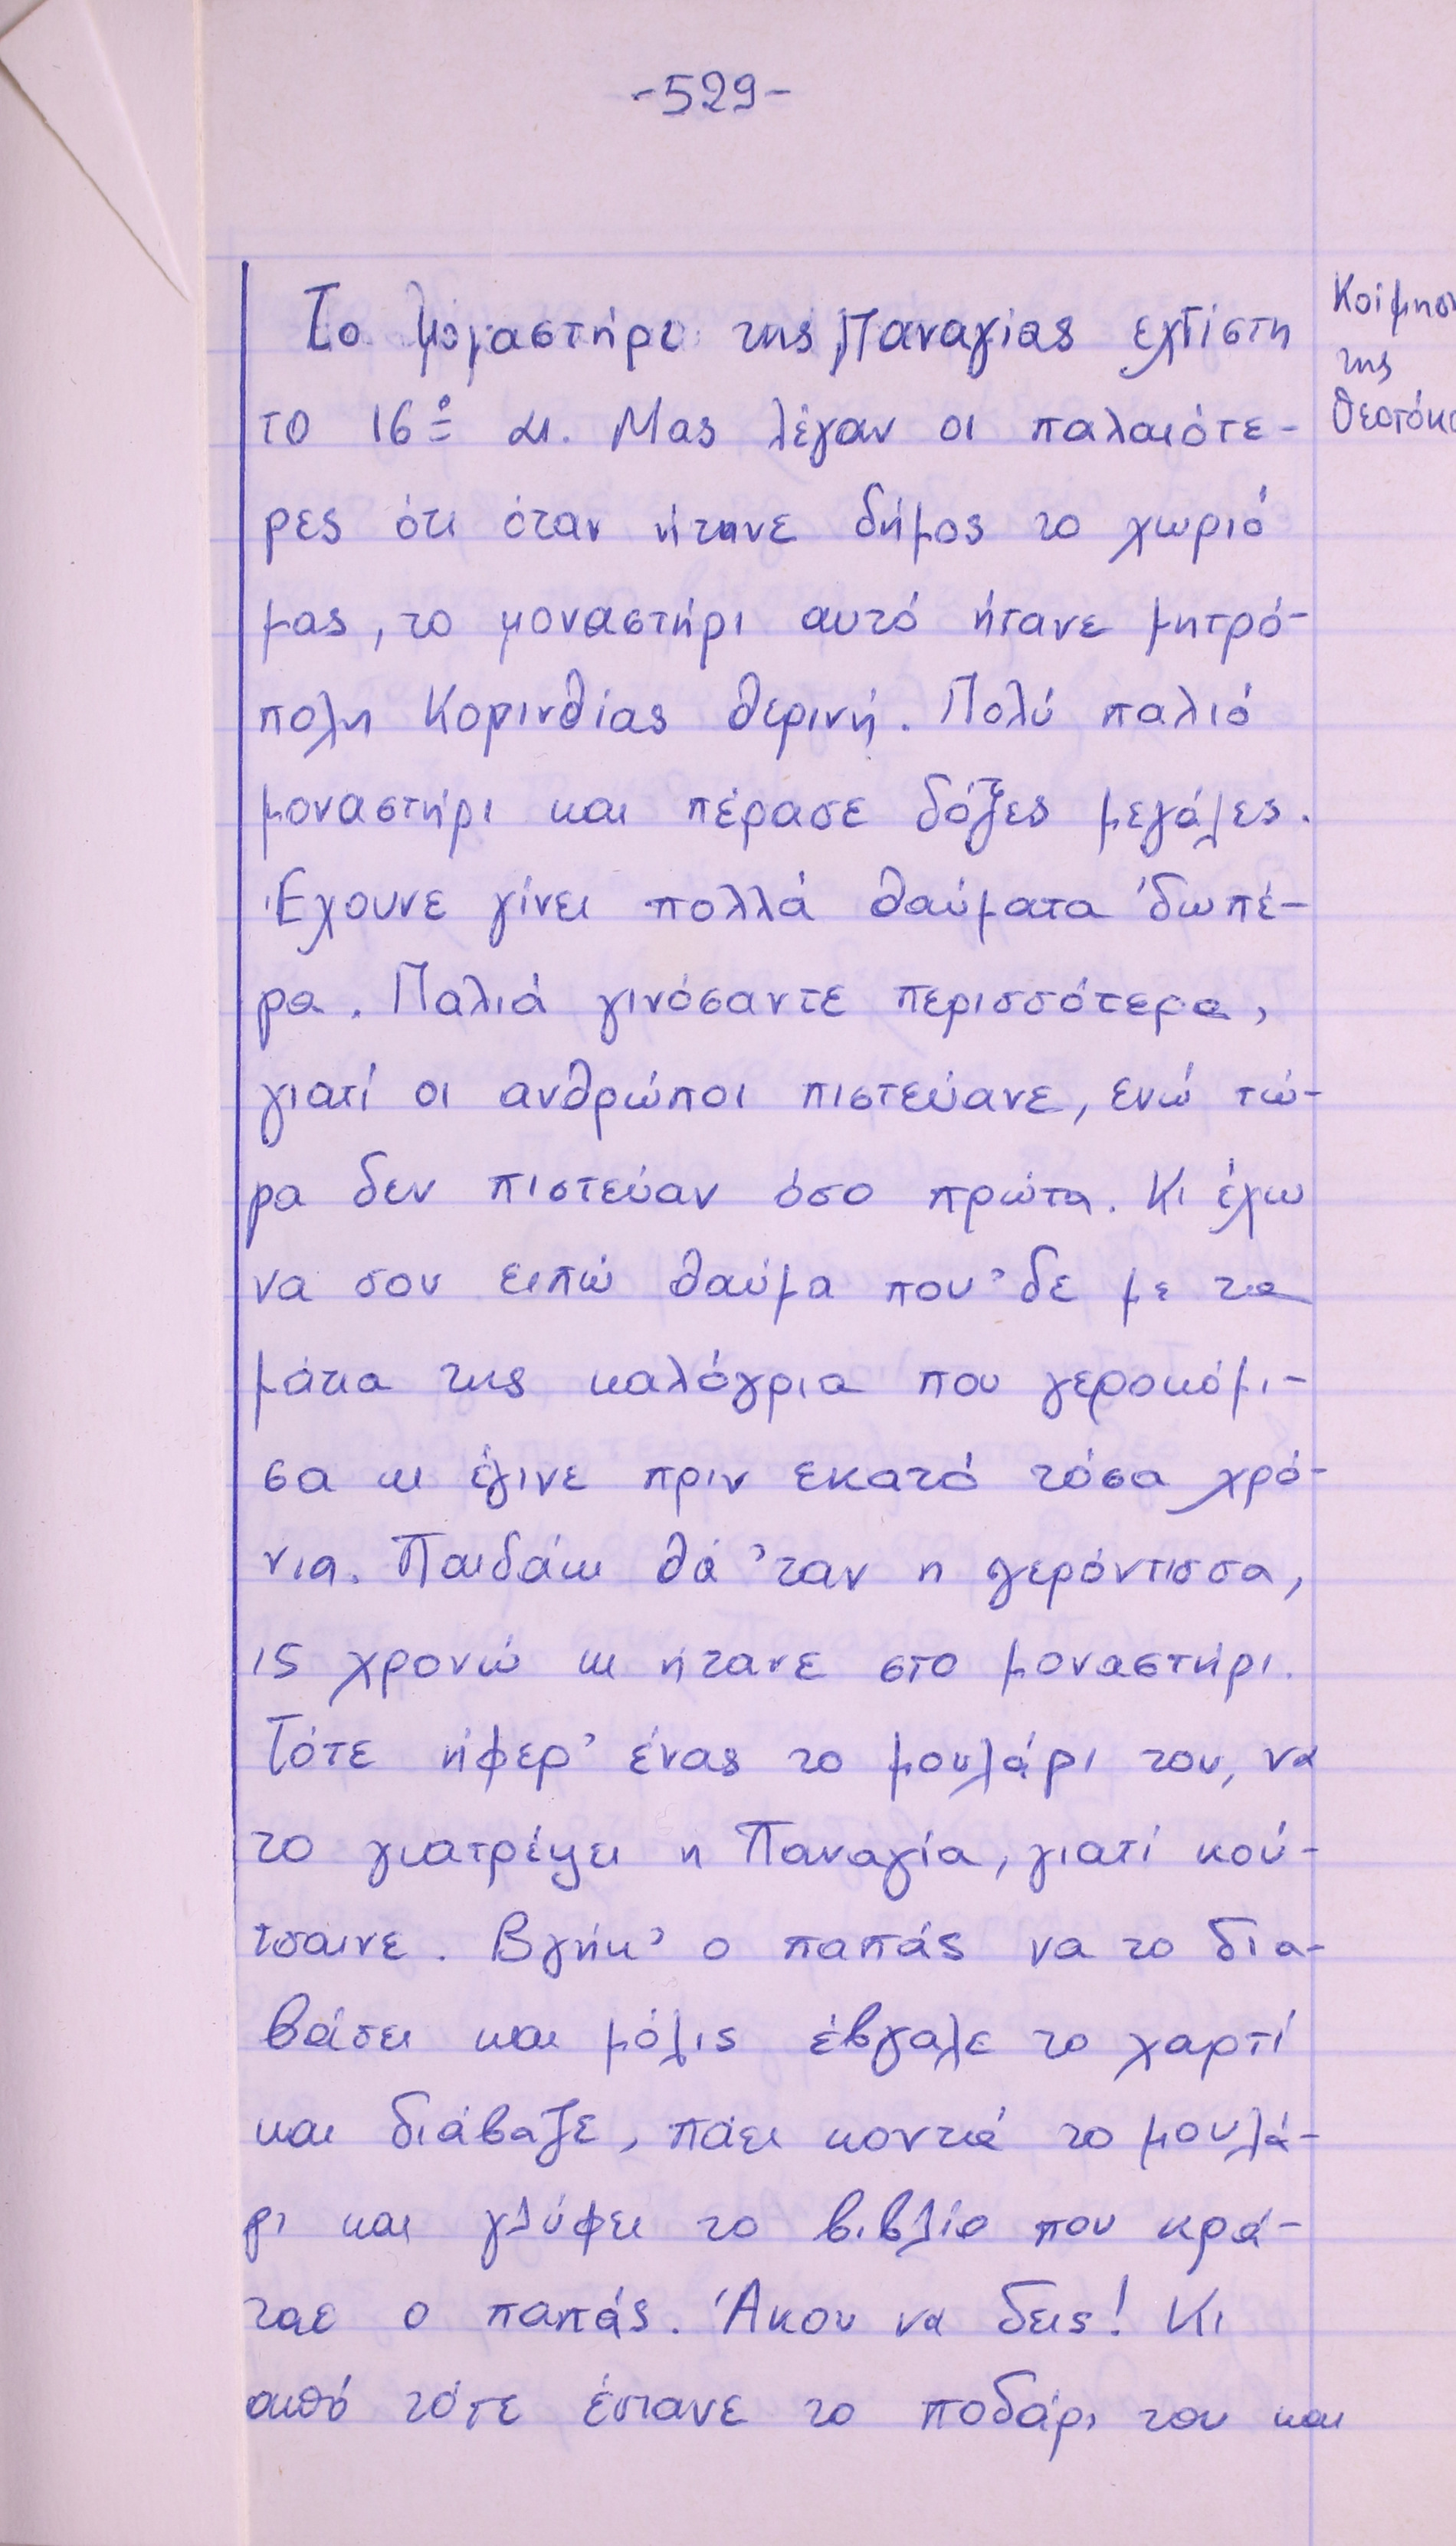 -529-
Το μοναστήρι της Παναγίας εχτίστη
το 16º αι. Μας λέγαν οι παλαιότε-
ρες ότι όταν ήτανε δήμος το χωριό
μας, το μοναστήρι αυτό ήτανε μητρό-
πολη Κορινθίας θερινή. Πολύ παλιό
μοναστήρι και πέρασε δόξες μεγάλες.
Έχουνε γίνει πολλά θαύματα 'δωπέ-
ρα. Παλιά γινόσαντε περισσότερα,
γιατί οι ανθρώποι πιστεύανε, ενώ τώ-
ρα δεν πιστεύαν όσο πρώτα. Κι έχω
να σου ειπώ θαύμα που 'δε με τα
μάτια της καλόγρια που γεροκόμι-
σα κι έγινε πριν εκατό τόσα χρό-
νια. Παιδάκι θά 'ταν η γερόντισσα,
15 χρονώ κι ήτανε στο μοναστήρι.
Τότε ήφερ' ένας το μουλάρι του, να
το γιατρέψει η Παναγία, γιατί κού-
τσαινε. Βγήκ' ο παπάς να το δια-
βάσει και μόλις έβγαλε το χαρτί
και διάβαζε, πάει κοντά το μουλά-
ρι και γλύφει το βιβλίο που κρά-
ταε ο παπάς. Άκου να δεις! Κι
από τότε έγιανε το ποδάρι του και
Κοίμησ
της
Θεοτόκο